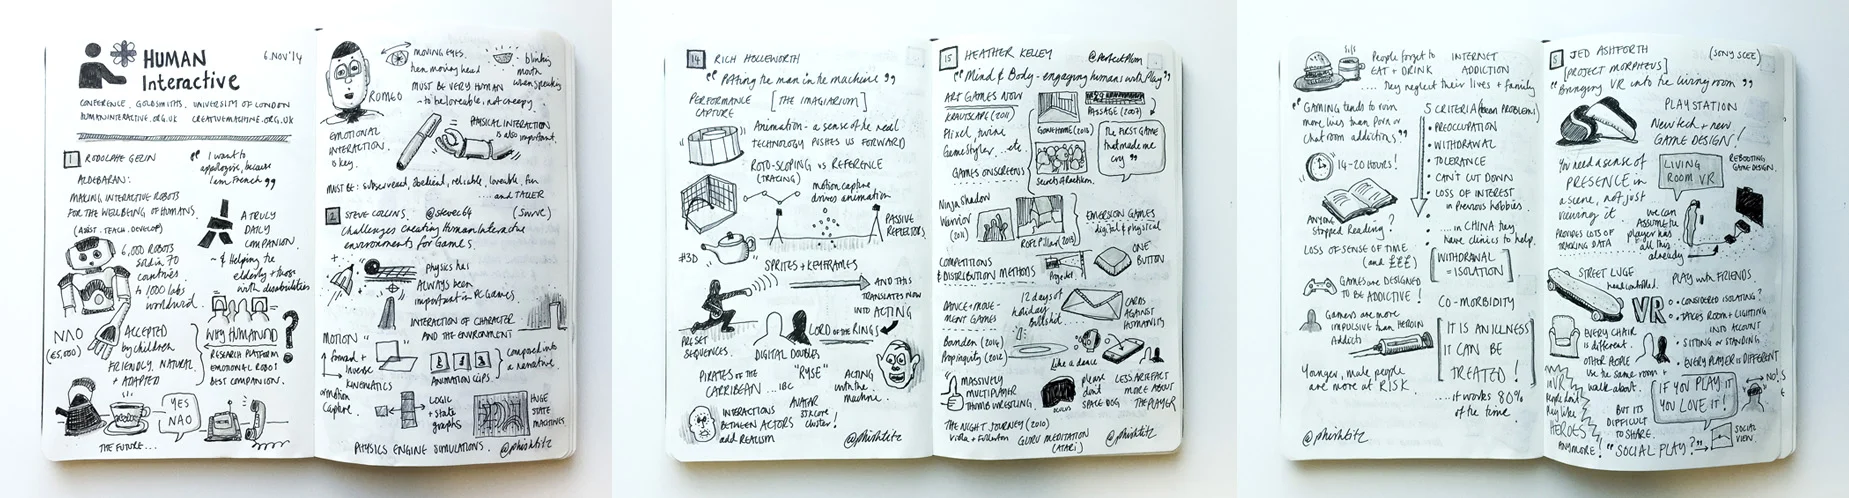 HUMAN
Interactive
6.NOV'14
CONFERENCE, GOLDSMITHS, UNIVERSITY OF LONDON
HUMANINTERACTIVE.ORG.UK CREATIVEMACHINE.ORG.UK
1 RODOLPHE GELIN
ALDEBARAN:
"I want to
apologise, because
I am French"
MAKING INTERACTIVE ROBOTS
FOR THE WELLBEING OF HUMANS
(ASSIST. TEACH. DEVELOP)
A TRULY
DAILY
COMPANION.
~ & Helping the
elderly + those
with disabilities
6,000 ROBOTS
sold in 70
countries
to 1000 labs
worldwide.
NAO
(€5,000)
ACCEPTED
by children
FRIENDLY, NATURAL
+ ADAPTED
WHY HUMANOID
?
RESEARCH PLATFORM
EMOTIONAL ROBOT
BEST COMPANION.
YES
NAO
THE FUTURE...
MOVING EYES,
then moving head
blinking
mouth
when speaking
MUST BE VERY HUMAN
~ to be loveable, not creepy.
ROMEO
EMOTIONAL
INTERACTION
is key.
PHYSICAL INTERACTION
is also important.
MUST BE: subservient, obedient, reliable, loveable, fun
... and TALLER
2 STEVE COLLINS. @stevec64
Challenges creating Human Interactive
environments for Games.
Physics has
ALWAYS been
important in PC Games
INTERACTION OF CHARACTER
AND THE ENVIRONMENT
MOTION
forward +
inverse
KINEMATICS
+ motion
Capture.
ANIMATION CLIPS
composed into
a narrative.
LOGIC
+ State
graphs
HUGE
STATE
MACHINES
PHYSICS ENGINE SIMULATIONS.
@phishtitz
14 RICH HOLLEWORTH
"Putting the man in the machine"
PERFORMANCE
CAPTURE
[THE IMAGINARIUM]
Animation - a sense of the real
TECHNOLOGY PUSHES US FORWARD
ROTO-SCOPING vs REFERENCE
(TRACING)
motion capture
drives animation
PASSIVE
REFLECTORS
#3D
SPRITES + KEYFRAMES
AND THIS
TRANSLATES NOW
INTO ACTING
PRESET
SEQUENCES.
LORD OF THE RINGS
DIGITAL DOUBLES
PIRATES OF THE
CARRIBEAN
"RYSE"
ACTING
with the
machine.
INTERACTIONS
BETWEEN ACTORS
add REALISM
AVATAR
@phishtitz
15 HEATHER KELLEY
@PerfectPlum
"Mind & Body - engaging humans with Play"
ART GAMES NOW
Pixel, twine
GameStyler...etc.
GAMES ON SCREENS
GONE HOME (2013)
PASSAGE (2007)
"The FIRST GAME
that made me
cry"
Ninja Shadow
Warrior
(2011)
EMERSION GAMES
digital & physical
COMPETITIONS
& DISTRIBUTION METHODS
Projector
ONE
BUTTON
DANCE + MOVE-
MENT GAMES
12 days of
holiday
bullshit
CARDS
AGAINST
HUMANITY
Bounden (2014)
Propinquity (2012)
Like a dance
MASSIVELY
MULTIPLAYER
THUMB WRESTLING.
please
don't
SPACE DOG
LESS ARTEFACT
MORE ABOUT
THE PLAYER
THE NIGHT JOURNEY (2010)
Viola + Fullerton
GURU MEDITATION
(ATARI)
@phishtitz
People forget to
EAT + DRINK
INTERNET
ADDICTION
.... they neglect their lives + family
"GAMING tends to ruin
more lives than Porn or
Chat room addictions"
14-20 HOURS!
ANYONE
stopped Reading?
LOSS OF SENSE OF TIME
(and £££)
GAMES are DESIGNED
TO BE ADDICTIVE!
Gamers are more
impulsive than HEROIN
Addicts
Younger, male people
are more at RISK
5 CRITERIA
• PREOCCUPATION
• WITHDRAWAL
• TOLERANCE
• CAN'T CUT DOWN
• LOSS OF INTEREST
in Previous hobbies.
.... in CHINA they
have clinics to help.
[WITHDRAWAL
= ISOLATION]
CO-MORBIDITY
[IT IS AN ILLNESS
IT CAN BE
TREATED!]
...it works 80%
of the time
@phishtitz
JED ASHFORTH
(SONY SCEE)
[PROJECT MORPHEUS]
"Bringing VR into the living room"
PLAYSTATION
New tech + new
GAME DESIGN!
You need a sense of
PRESENCE in
a scene, not just
viewing it
PROVIDES LOTS OF
TRACKING DATA
LIVING
ROOM VR
REBOOTING
GAME DESIGN.
we can
ASSUME the
player has
all this
already
STREET LUGE
head controlled.
VR
PLAY with FRIENDS
• CONSIDERED ISOLATING?
• TAKES ROOM + LIGHTING
INTO ACCOUNT
• SITTING or STANDING
• EVERY PLAYER is DIFFERENT
EVERY CHAIR
is different.
OTHER PEOPLE
use the same room +
walk about.
IF YOU PLAY IT
YOU LOVE IT!
NO!
in VR
People don't
play like
HEROES
ANYMORE!
BUT ITS
DIFFICULT
TO SHARE.
"SOCIAL PLAY?"
SOCIAL
VIEW.